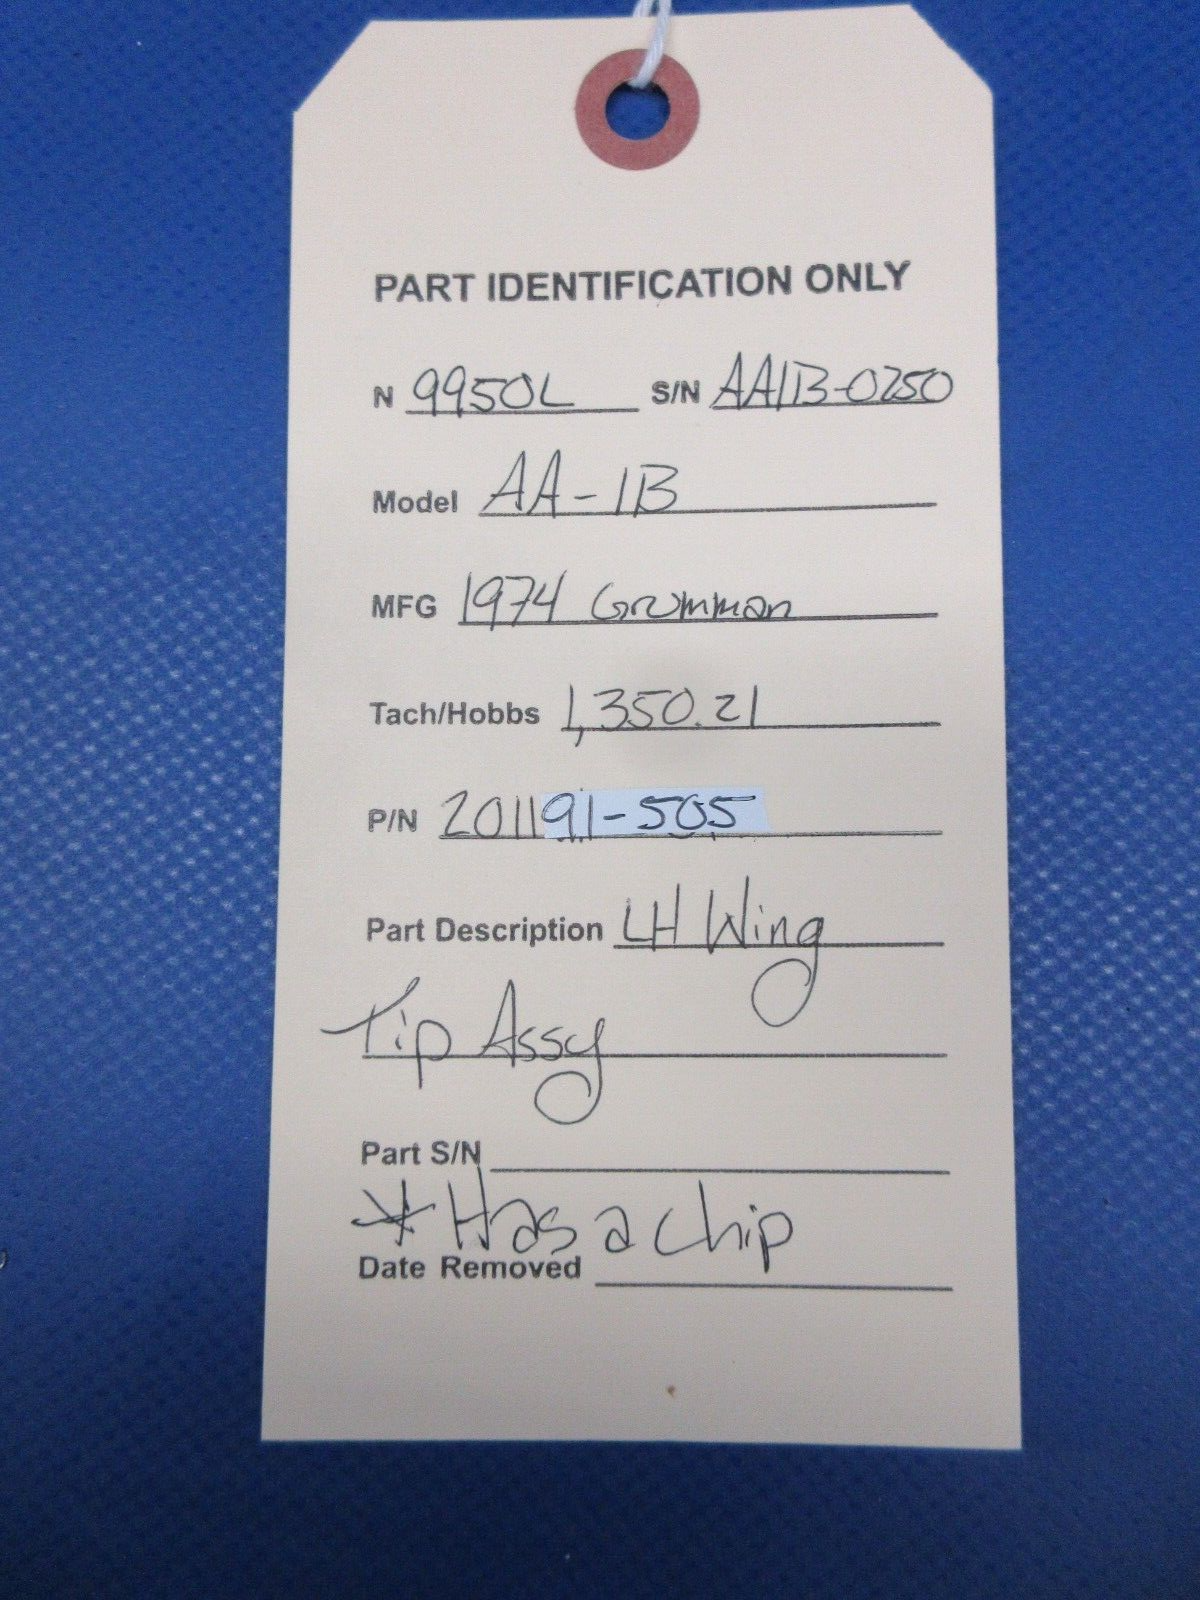 PART IDENTIFICATION ONLY
N 9950L S/N AA1B-0250
Model AA-1B
MFG 1974 Grumman
Tach/Hobbs 1,350.21
P/N 201191-505
Part Description LH Wing
Tip Assy
Part S/N
* Has a chip
Date Removed